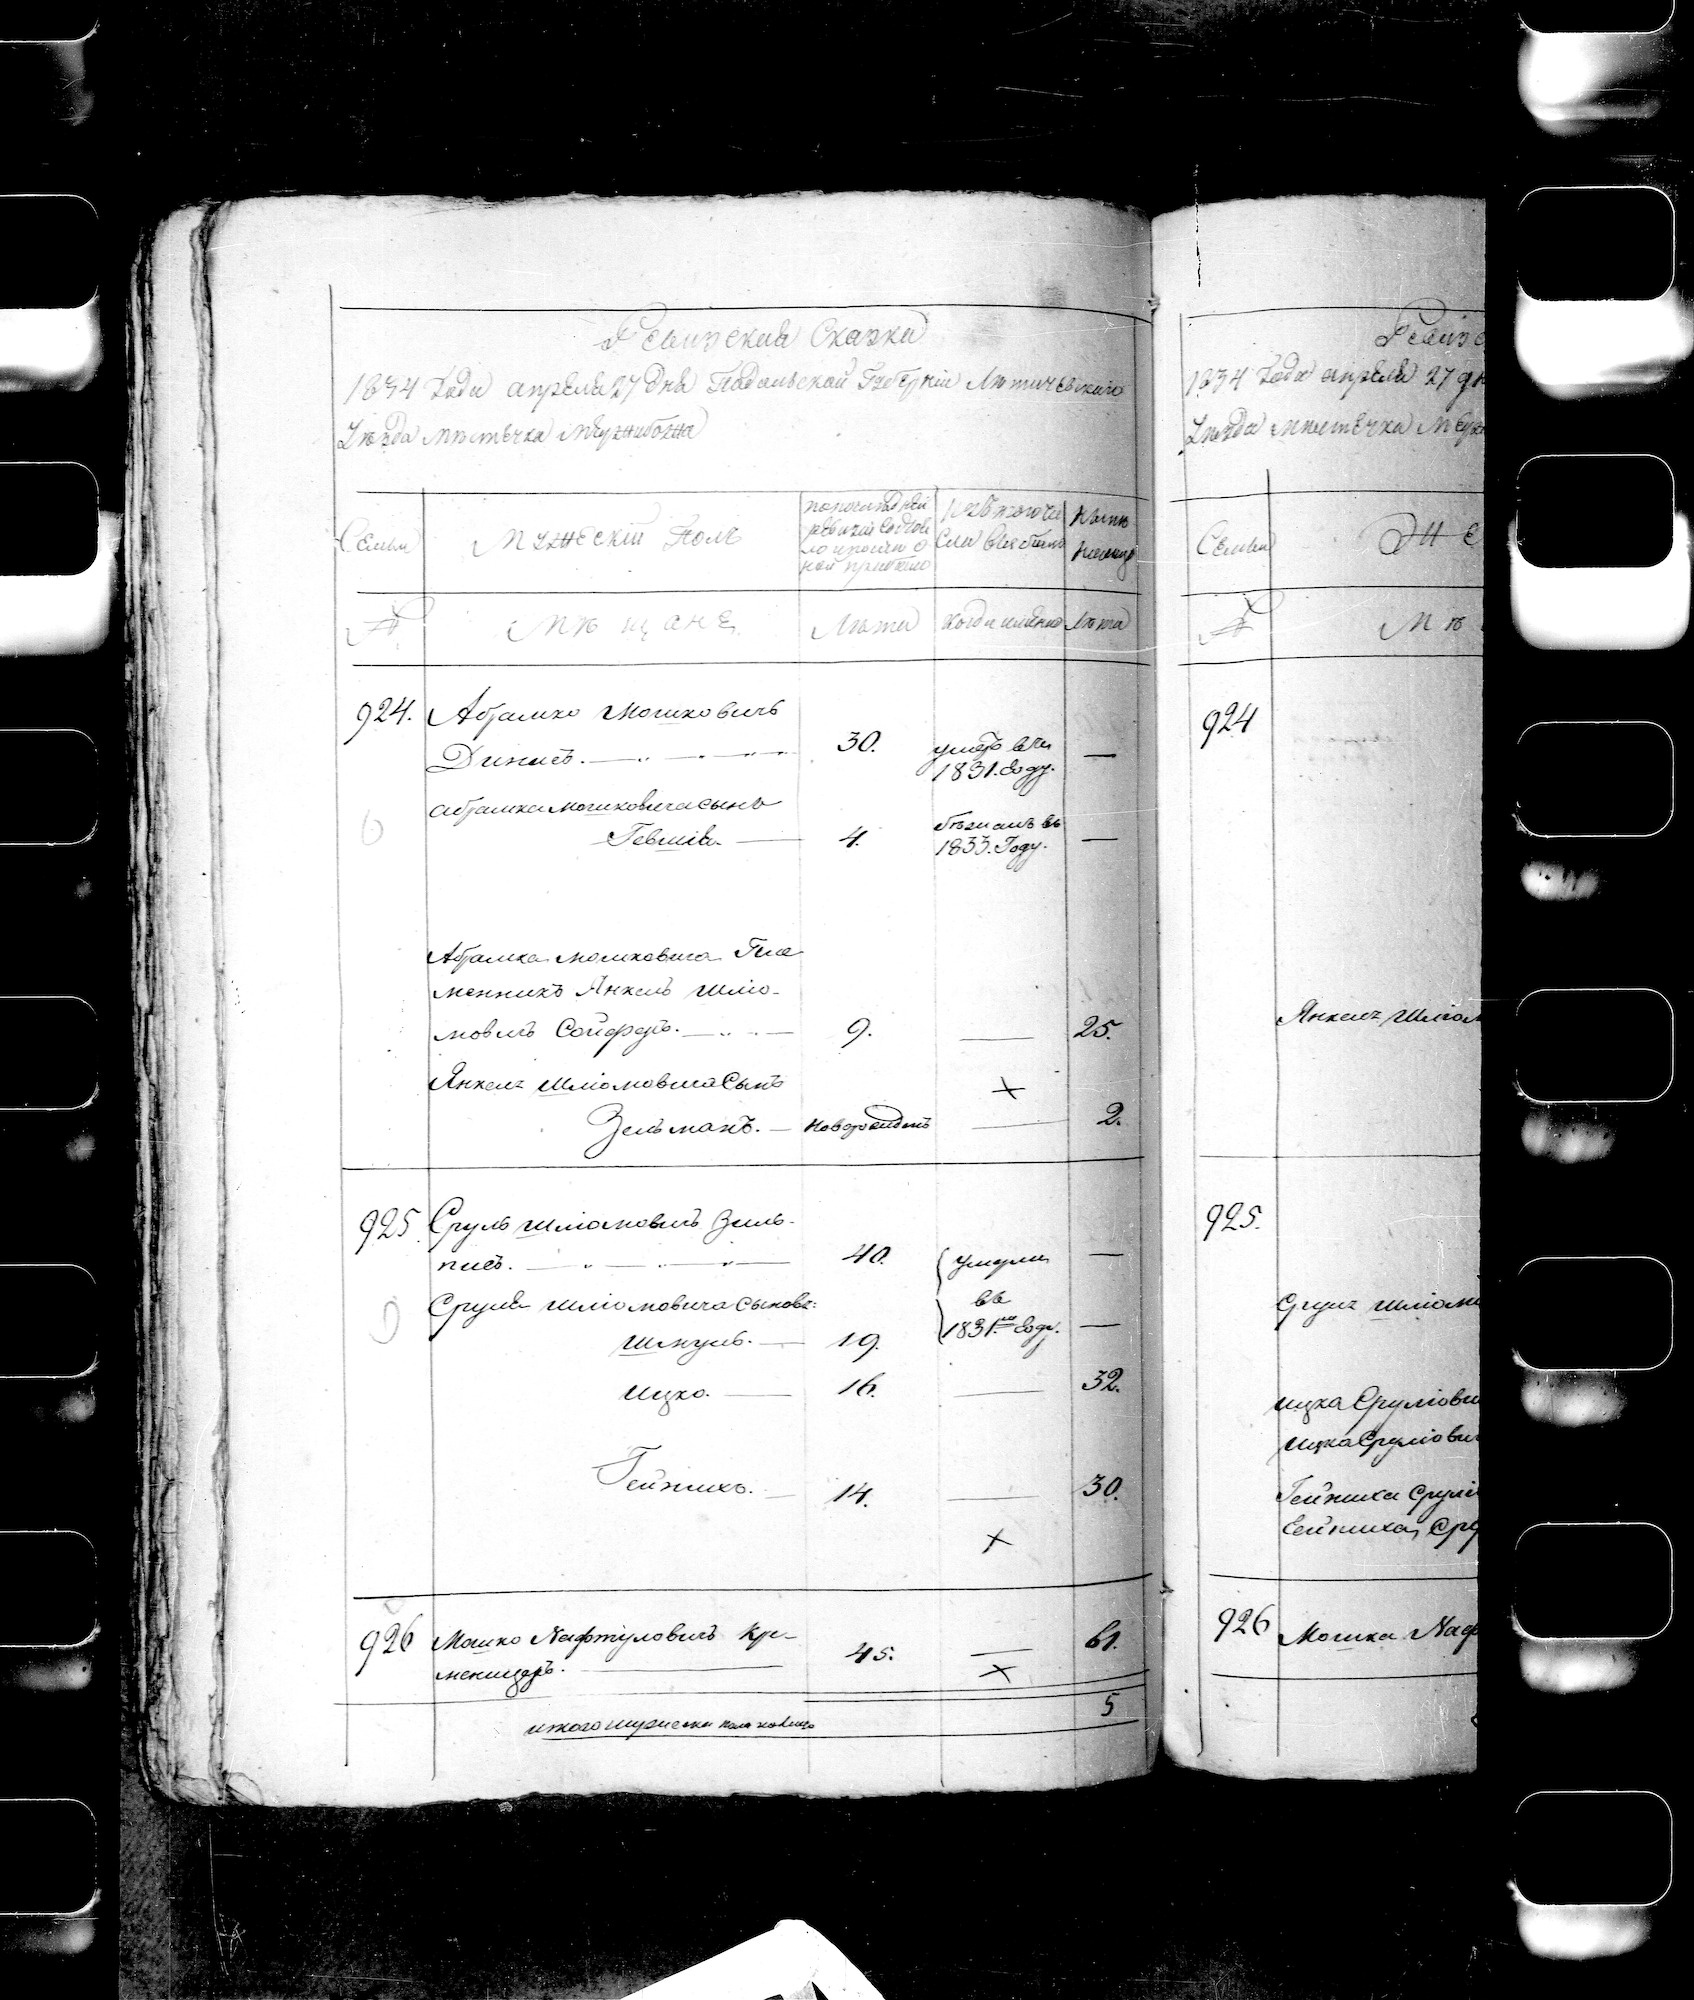 Ревизская Сказка
1834 Года апреля 27 дня Подольской Губерніи Лѣтичевскаго
Уѣзда мѣстечка Межибожа
Семьи
Мужескій Полъ
по последней
ревизіи состоя
ло и после о
ной прибыло
Изъ того чи
сла выбыло
Нынѣ
на лицо
№
Мѣщане
Лѣта
Когда именно
Лѣта
924. Абрамко Мошковичъ
30. умеръ въ
1831. Году. —
абрамка мошковича сынъ
4. бѣжалъ въ
1833. Году. —
Абрамка мошковича Пле
менникъ Янкель Шліо-
мовичъ 9. — 25.
Янкеля Шліомовича Сынъ
Зельманъ. — новорожденъ — 2.
925 Сруль Шліомовичъ Зиль-
40. умерли —
Сруля Шліомовича сыновья: въ
Шмуль. — 19. 1831.м Году. —
Ицко. — 16. — 32.
14. — 30.
926 Мошко Нафтуловичъ Кре-
менецеръ. 45. — 61.
итого мужеска пола налицо 5
Ревизс
1834 Года апреля 27 дн
Уѣзда мѣстечка Меж
Семьи
Же
№
Мѣ
924
Янкеля Шліом
925.
Сруля Шліомо
Ицка Сруліови
Ицка Сруліович
926 Мошка Наф